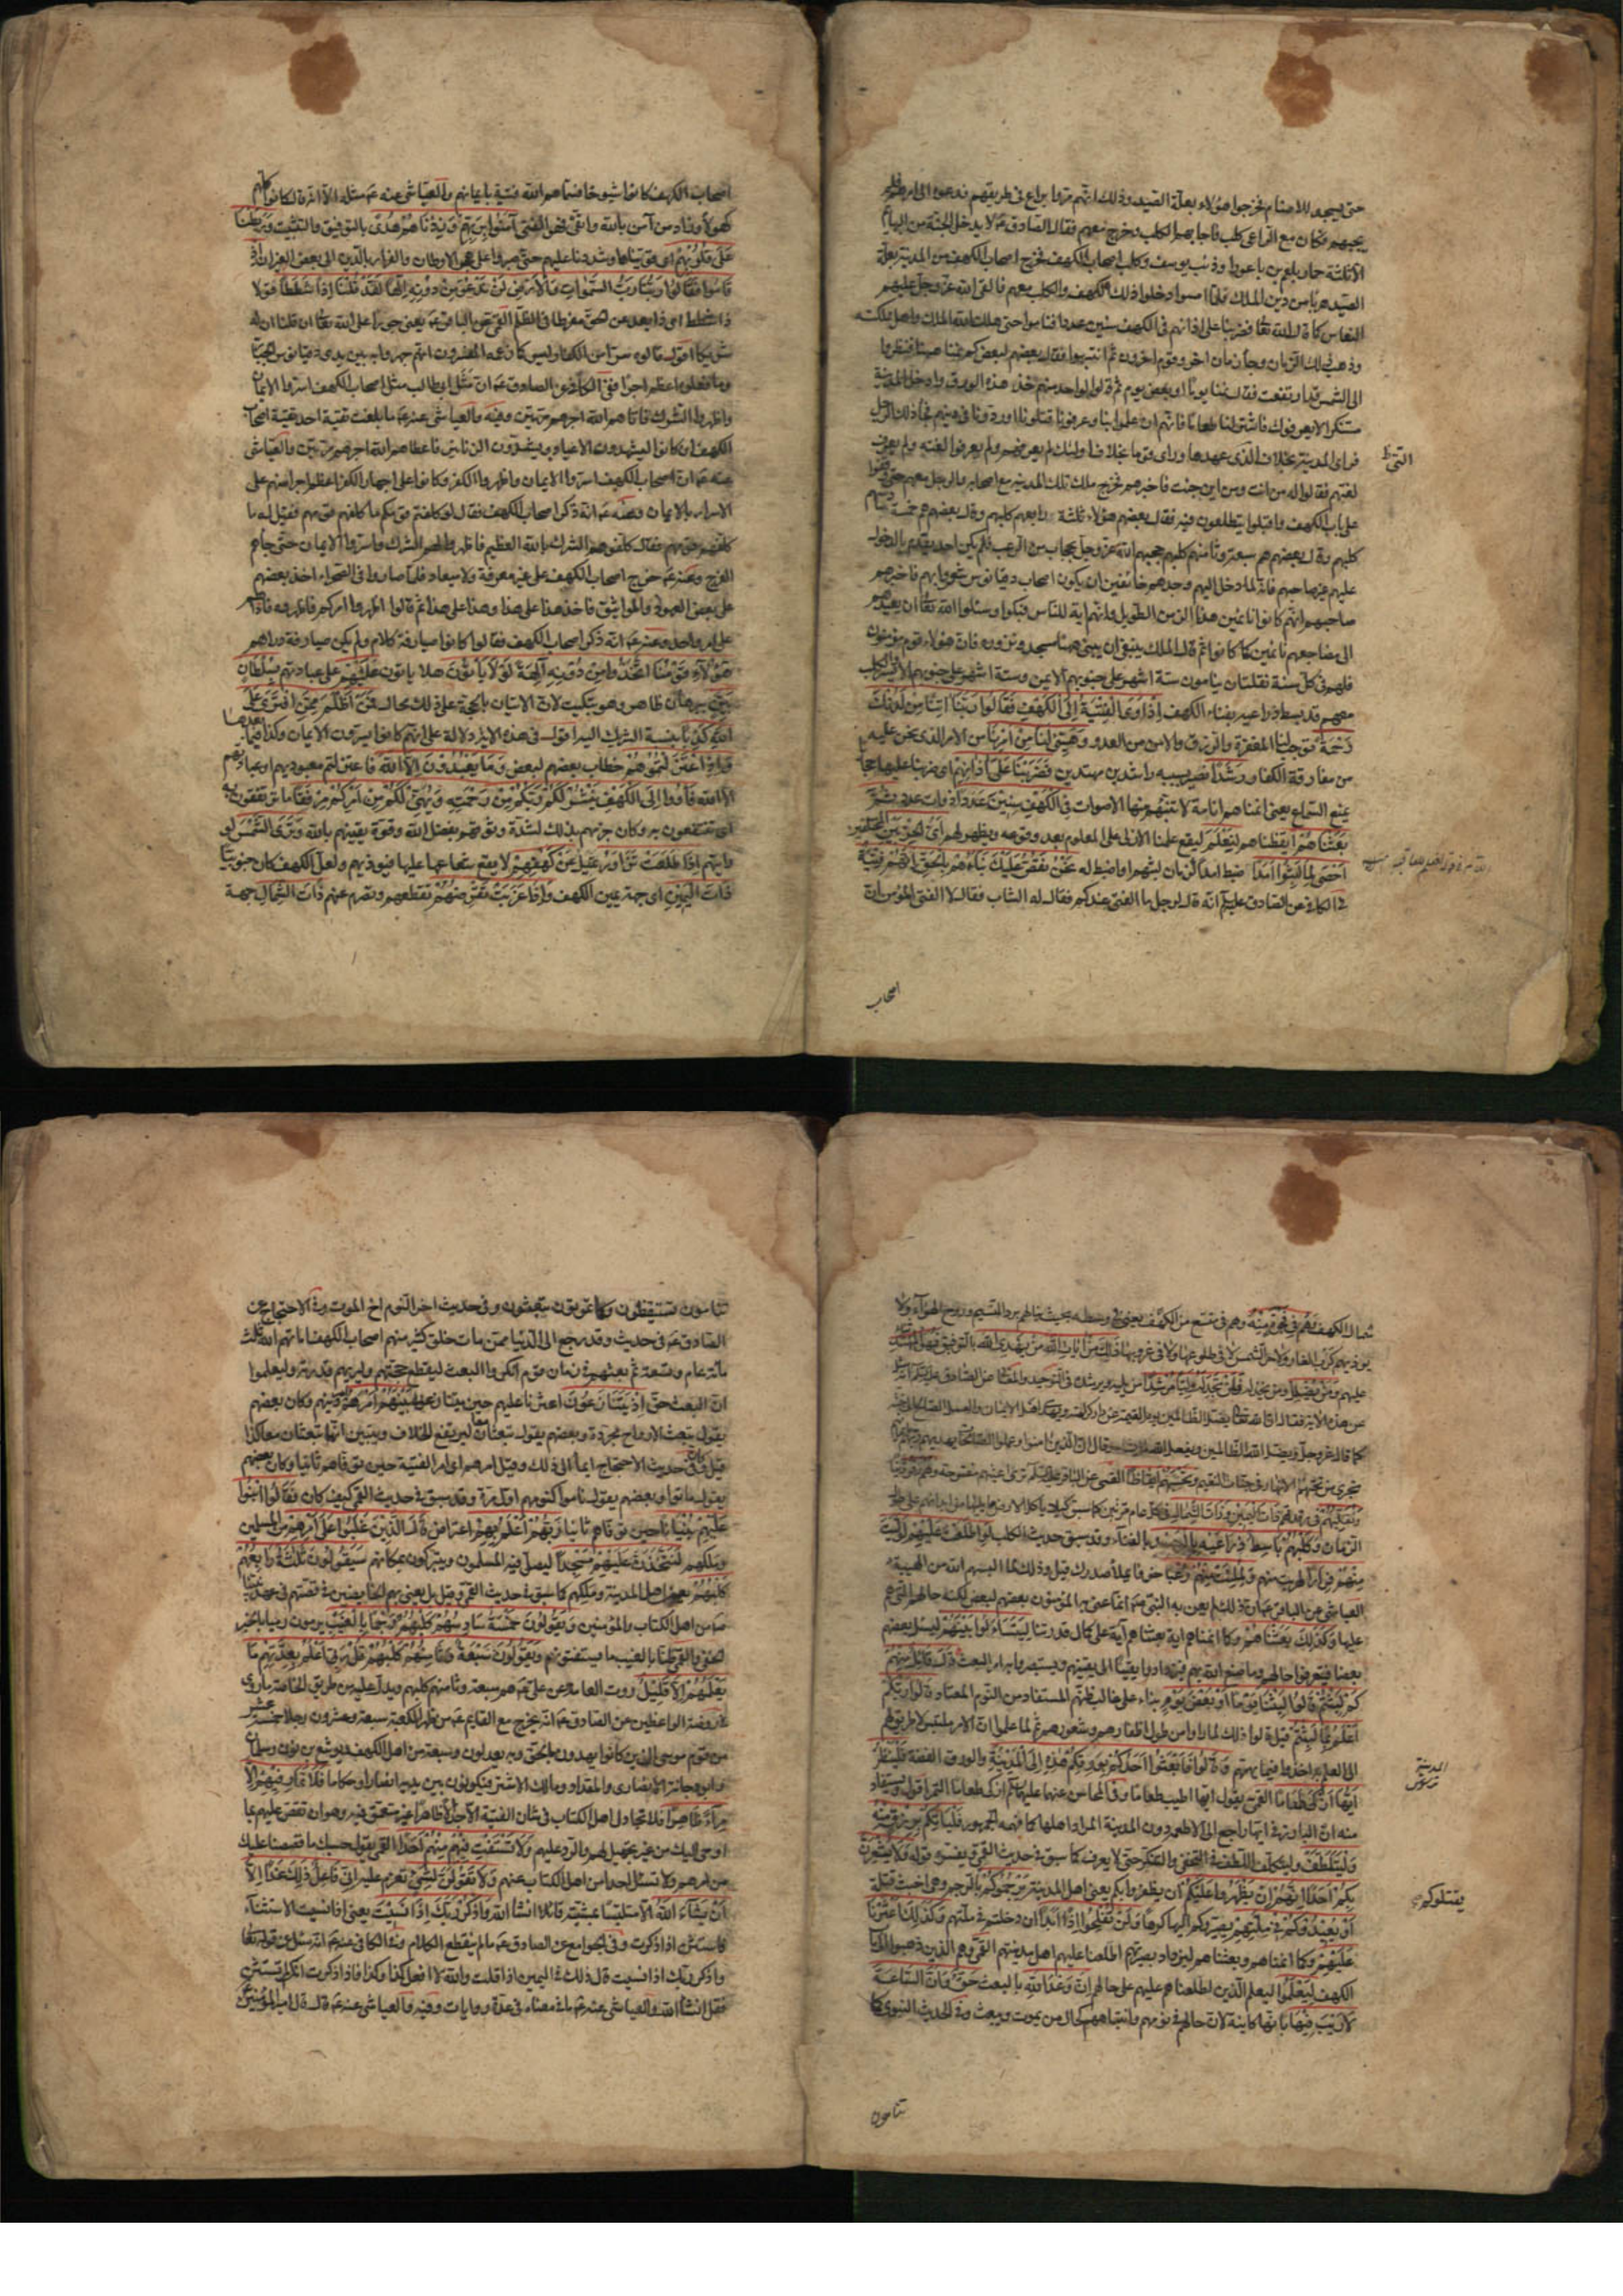 حتى يسجد للاصنام فخرجوا هؤلاء بعلة الصيد وذلك انهم مروا براع في طريقهم فدعوه الى امرهم فلم
يجبهم وكان مع الراعي كلب فاجابهم الكلب وخرج معهم فقال الصادق ع لا يدخل الجنة من البهايم
الا ثلثة حمار بلعم بن باعورا وذئب يوسف وكلب اصحاب الكهف فخرج اصحاب الكهف من المدينة بعلة
الصيد هربا من دين الملك فلما امسوا دخلوا ذلك الكهف والكلب معهم فالقى الله عز وجل عليهم
النعاس كما قال الله تعا فضربنا على اذانهم في الكهف سنين عددا فناموا حتى اهلك الله الملك واهل مملكته
وذهب ذلك الزمان وجاء زمان اخر وقوم اخرون ثم انتبهوا فقال بعضهم لبعض كم نمنا ههنا فنظروا
الى الشمس قد ارتفعت فقالوا نمنا يوما او بعض يوم ثم قالوا لواحد منهم خذ هذه الورق وادخل المدينة
متنكرا لا يعرفوك فاشتر لنا طعاما فانهم ان علموا بنا وعرفونا قتلونا او ردونا في دينهم فجاء ذلك الرجل
فراى المدينة بخلاف الذي عهدها وراى قوما بخلاف اولئك لم يعرفهم ولم يعرفوا لغته ولم يعرف
التي ط
لغتهم فقالوا له من انت ومن اين جئت فاخبرهم فخرج ملك تلك المدينة مع اصحابه والرجل معهم حتى وقفوا
على باب الكهف واقبلوا يتطلعون فيه فقال بعضهم هؤلاء ثلثة رابعهم كلبهم وقال بعضهم هم خمسة سادسهم
كلبهم وقال بعضهم هم سبعة وثامنهم كلبهم وحجبهم الله عز وجل بحجاب من الرعب فلم يكن احد يقدم بالدخول
عليهم غير صاحبهم فانه لما دخل اليهم وجدهم خائفين ان يكون اصحاب دقيانوس شعروا بهم فاخبرهم
صاحبهم انهم كانوا نائمين هذا الزمن الطويل وانهم اية للناس فبكوا وسئلوا الله تعا ان يعيدهم
الى مضاجعهم نائمين كما كانوا ثم قال الملك ينبغي ان يبنى ههنا مسجد ونزوره فان هؤلاء قوم مؤمنون
فلهم في كل سنة نقلتان ينامون ستة اشهر على جنوبهم الايمن وستة اشهر على جنوبهم الايسر والكلب
معهم قد بسط ذراعيه بفناء الكهف اذ اوى الفتية الى الكهف فقالوا ربنا اتنا من لدنك
رحمة توجب لنا المغفرة والرزق والامن من العدو وهيئ لنا من امرنا من الامر الذي نحن عليه
من مفارقة الكفار رشدا نصير بسببه راشدين مهتدين فضربنا على اذانهم اي ضربنا عليها حجابا
يمنع السماع يعني انمناهم انامة لا تنبههم منها الاصوات في الكهف سنين عددا ذوات عدد ثم
بعثناهم ايقظناهم لنعلم ليقع علمنا الازلي على المعلوم بعد وقوعه ويظهر لهم اي الحزبين المختلفين
احصى لما لبثوا امدا ضبط امدا لزمان لبثهم او اضبط له نحن نقص عليك نباهم بالحق انهم فتية
في الكافي عن الصادق عليه السلام انه قال لرجل ما الفتى عندكم فقال له الشاب فقال لا الفتى المؤمن ان
اصحاب
اصحاب الكهف كانوا شيوخا فسماهم الله فتية بايمانهم والعياشي عنه ع مثله الا انه قال كانوا كلهم
كهولا وزاد من آمن بالله واتقى فهو الفتى آمنوا بربهم وزدناهم هدى بالتوفيق والتثبيت وربطنا
على قلوبهم اي قويناها وشددنا عليهم حتى صبروا على هجر الاوطان والفرار بالدين الى بعض الغيران اذ
قاموا فقالوا ربنا رب السموات والارض لن ندعو من دونه الها لقد قلنا اذا شططا قولا
ذا شطط اي ذا بعد عن الحق مفرطا في الظلم القمي عن الباقر ع يعني جورا على الله تعا ان قلنا ان له
شريكا اقول قالوه سرا من الكفار وليس كما زعمه المفسرون انهم جهروا به بين يدي دقيانوس الجبار
وما فعلوه اعظم اجرا ففي الكافي عن الصادق ع ان مثل ابي طالب مثل اصحاب الكهف اسروا الايمان
واظهروا الشرك فاتاهم الله اجرهم مرتين وفيه والعياشي عنه ع ما بلغت تقية احد تقية اصحاب
الكهف ان كانوا ليشهدون الاعياد ويشدون الزنانير فاعطاهم الله اجرهم مرتين والعياشي
عنه ع ان اصحاب الكهف اسروا الايمان واظهروا الكفر وكانوا على اجهار الكفر اعظم اجرا منهم على
الاسرار بالايمان وعنه ع انه ذكر اصحاب الكهف فقال لو كلفكم قومكم ما كلفهم قومهم فقيل له ما
كلفهم قومهم فقال كلفوهم الشرك بالله العظيم فاظهروا لهم الشرك واسروا الايمان حتى جاءهم
الفرج وعنه ع خرج اصحاب الكهف على غير معرفة ولا ميعاد فلما صاروا في الصحراء اخذ بعضهم
على بعض العهود والمواثيق فاخذ هذا على هذا وهذا على هذا ثم قالوا اظهروا امركم فاظهروه فاذا هم
على امر واحد وعنه ع انه ذكر اصحاب الكهف فقال كانوا صيارفة كلام ولم يكن صيارفة دراهم
هؤلاء قومنا اتخذوا من دونه آلهة لولا يأتون هلا ياتون عليهم على عبادتهم بسلطان
بين ببرهان ظاهر وهو تبكيت لان الاتيان بالحجة على ذلك محال فمن اظلم ممن افترى على
الله كذبا بنسبة الشريك اليه اقول في هذه الاية دلالة على انهم كانوا يسرون الايمان وكذا فيما بعدها
واذ اعتزلتموهم خطاب بعضهم لبعض وما يعبدون الا الله فاعتزلتم معبوديهم او عبادتهم
الا الله فأووا الى الكهف ينشر لكم ربكم من رحمته ويهيئ لكم من امركم مرفقا ما ترتفقون به
اي تنتفعون به وكان جزمهم بذلك لشدة وثوقهم بفضل الله وقوة يقينهم بالله وترى الشمس لو
رايتهم اذا طلعت تزاور تميل عن كهفهم لا يقع شعاعها عليها فيوذيهم ولعل الكهف كان جنوبيا
ذات اليمين اي جهة يمين الكهف واذا غربت تقرضهم تقطعهم وتصرم عنهم ذات الشمال جهة
شمال الكهف وهم في فجوة منه وهم في متسع من الكهف يعني في وسطه بحيث ينالهم برد النسيم وروح الهواء ولا
يوذيهم كرب الغار ولا حر الشمس لا في طلوعها ولا في غروبها ذلك من آيات الله من يهد الله بالتوفيق فهو المهتد
عليهم ومن يضلل ومن يخذله فلن تجد له وليا مرشدا من يليه ويرشده في التوحيد والعياشي عن الصادق عليه السلام انه سئل
عن هذه الاية فقال ان الله تعا يضل الظالمين يوم القيمة عن دار كرامته ويهدي اهل الايمان والعمل الصالح الى جنته
كما قال عز وجل ويضل الله الظالمين ويفعل الله ما يشاء وقال ان الذين امنوا وعملوا الصالحات يهديهم ربهم بايمانهم
تجري من تحتهم الانهار في جنات النعيم وتحسبهم ايقاظا القمي عن الباقر عليه السلام ترى اعينهم مفتوحة وهم رقود نيام
ونقلبهم في رقدتهم ذات اليمين وذات الشمال في كل عام مرتين كما سبق كيلا ياكل الارض ما يليها من ابدانهم على طول
الزمان وكلبهم باسط ذراعيه بالوصيد بالفناء وقد سبق حديث الكلب لو اطلعت عليهم لوليت
منهم فرارا لهربت منهم ولملئت منهم رعبا خوفا يملأ صدرك قيل وذلك لما البسهم الله من الهيبة
العياشي عن الباقر ع ان ذلك لم يعن به النبي ص انما عنى به المؤمنون بعضهم لبعض لكنه حالهم التي هم
عليها وكذلك بعثناهم وكما انمناهم اية بعثناهم آية على كمال قدرتنا ليتساءلوا بينهم ليسئل بعضهم
بعضا فيتعرفوا حالهم وما صنع الله بهم فيزدادوا يقينا الى يقينهم ويستبصروا به امر البعث قال قائل منهم
كم لبثتم قالوا لبثنا يوما او بعض يوم بناء على غالب ظنهم المستفاد من النوم المعتاد قالوا ربكم
اعلم بما لبثتم قيل قالوا ذلك لما راوا من طول اظفارهم وشعورهم ثم لما علموا ان الامر ملتبس لا طريق لهم
الى العلم به اخذوا فيما يهمهم وقالوا فابعثوا احدكم بورقكم هذه الى المدينة والورق الفضة فلينظر
المدينة
ايها ازكى طعاما القمي يقول ايها اطيب طعاما وفي المحاسن عنهما عليهما السلام ازكى طعاما التمر اقول ويستفاد
منه ان البارز في ايها راجع الى الاطعمة دون المدينة المراد اهلها كما فهمه الجمهور فلياتكم برزق منه
وليتلطف وليتكلف اللطف في التخفي والتنكر حتى لا يعرف كما سبق في حديث القمي ويفسره قوله ولا يشعرن
بكم احدا انهم ان يظهروا عليكم ان يظفروا بكم يعني اهل المدينة يرجموكم بالرجم وهي اخبث قتلة
يقتلوكم
او يعيدوكم في ملتهم يصيروكم اليها كرها ولن تفلحوا اذا ابدا ان دخلتم في ملتهم وكذلك اعثرنا
عليهم وكما انمناهم وبعثناهم ليزداد بصيرتهم اطلعنا عليهم اهل مدينتهم القمي وهم الذين ذهبوا الى باب
الكهف ليعلموا ليعلم الذين اطلعناهم عليهم على حالهم ان وعد الله بالبعث حق وان الساعة
لا ريب فيها بانها كاينة لان حالهم في نومهم وانتباههم كحال من يموت ويبعث وفي الحديث النبوي كما
تنامون
تنامون تستيقظون وكما تموتون تبعثون وفي حديث اخر النوم اخ الموت وفي الاحتجاج عن
الصادق ع في حديث وقد رجع الى الدنيا ممن مات خلق كثير منهم اصحاب الكهف اماتهم الله ثلث
مائة عام وتسعة ثم بعثهم في زمان قوم انكروا البعث ليقطع حجتهم وليريهم قدرته وليعلموا
ان البعث حق اذ يتنازعون اعثرنا عليهم حين يتنازعون بينهم امرهم امر دينهم وكان بعضهم
يقول تبعث الارواح مجردة وبعضهم يقول تبعثان معا ليرتفع الخلاف ويتبين انهما تبعثان معا كذا
قيل وفي حديث الاحتجاج ايماء الى ذلك وقيل امرهم اي امر الفتية حين توفاهم ثانيا وكان بعضهم
يقول ماتوا وبعضهم يقول ناموا كنومهم اول مرة وقد سبق في حديث القمي كيف كان فقالوا ابنوا
عليهم بنيانا حين توفاهم ثانيا ربهم اعلم بهم اعتراض قال الذين غلبوا على امرهم من المسلمين
وملكهم لنتخذن عليهم مسجدا ليصلي فيه المسلمون ويتبركون بمكانهم سيقولون ثلثة رابعهم
كلبهم يعني اهل المدينة وملكهم كما سبق في حديث القمي وقيل بل يعني بهم الخائضين في قصتهم في عهد نبينا
ص من اهل الكتاب والمؤمنين ويقولون خمسة سادسهم كلبهم رجما بالغيب يرمون رميا بالخبر
الخفي والقمي ظنا بالغيب ما يستفتونهم ويقولون سبعة وثامنهم كلبهم قل ربي اعلم بعدتهم ما
يعلمهم الا قليل روت العامة عن علي ع هم سبعة وثامنهم كلبهم ويدل عليه من طريق الخاصة ما روي
في روضة الواعظين عن الصادق ع انه يخرج مع القايم ع من ظهر الكعبة سبعة وعشرون رجلا خمسة عشر
من قوم موسى الذين كانوا يهدون بالحق وبه يعدلون وسبعة من اهل الكهف ويوشع بن نون وسلمان
وابو دجانة الانصاري والمقداد ومالك الاشتر فيكونون بين يديه انصارا وحكاما فلا تمار فيهم الا
مراء ظاهرا فلا تجادل اهل الكتاب في شان الفتية الا جدالا ظاهرا غير متعمق فيه وهو ان تقص عليهم ما
اوحي اليك من غير تجهيل لهم والرد عليهم ولا تستفت فيهم منهم احدا القمي يقول حسبك ما قصصنا عليك
من امرهم ولا تسئل احدا من اهل الكتاب عنهم ولا تقولن لشيء تعزم عليه اني فاعل ذلك غدا الا
ان يشاء الله الا متلبسا بمشيته قائلا انشاء الله واذكر ربك اذا نسيت يعني اذا نسيت الاستثناء
فاستثن اذا ذكرت وفي الجوامع عن الصادق ع ما لم ينقطع الكلام وفي الكافي عنه ع انه سئل عن قوله تعا
واذكر ربك اذا نسيت قال ذلك في اليمين اذا قلت والله لا افعل كذا وكذا فاذا ذكرت انك لم تستثن
فقل انشاء الله والعياشي عنه ع ما في معناه في عدة روايات وفيه والعياشي عنه ع قال قال امير المؤمنين